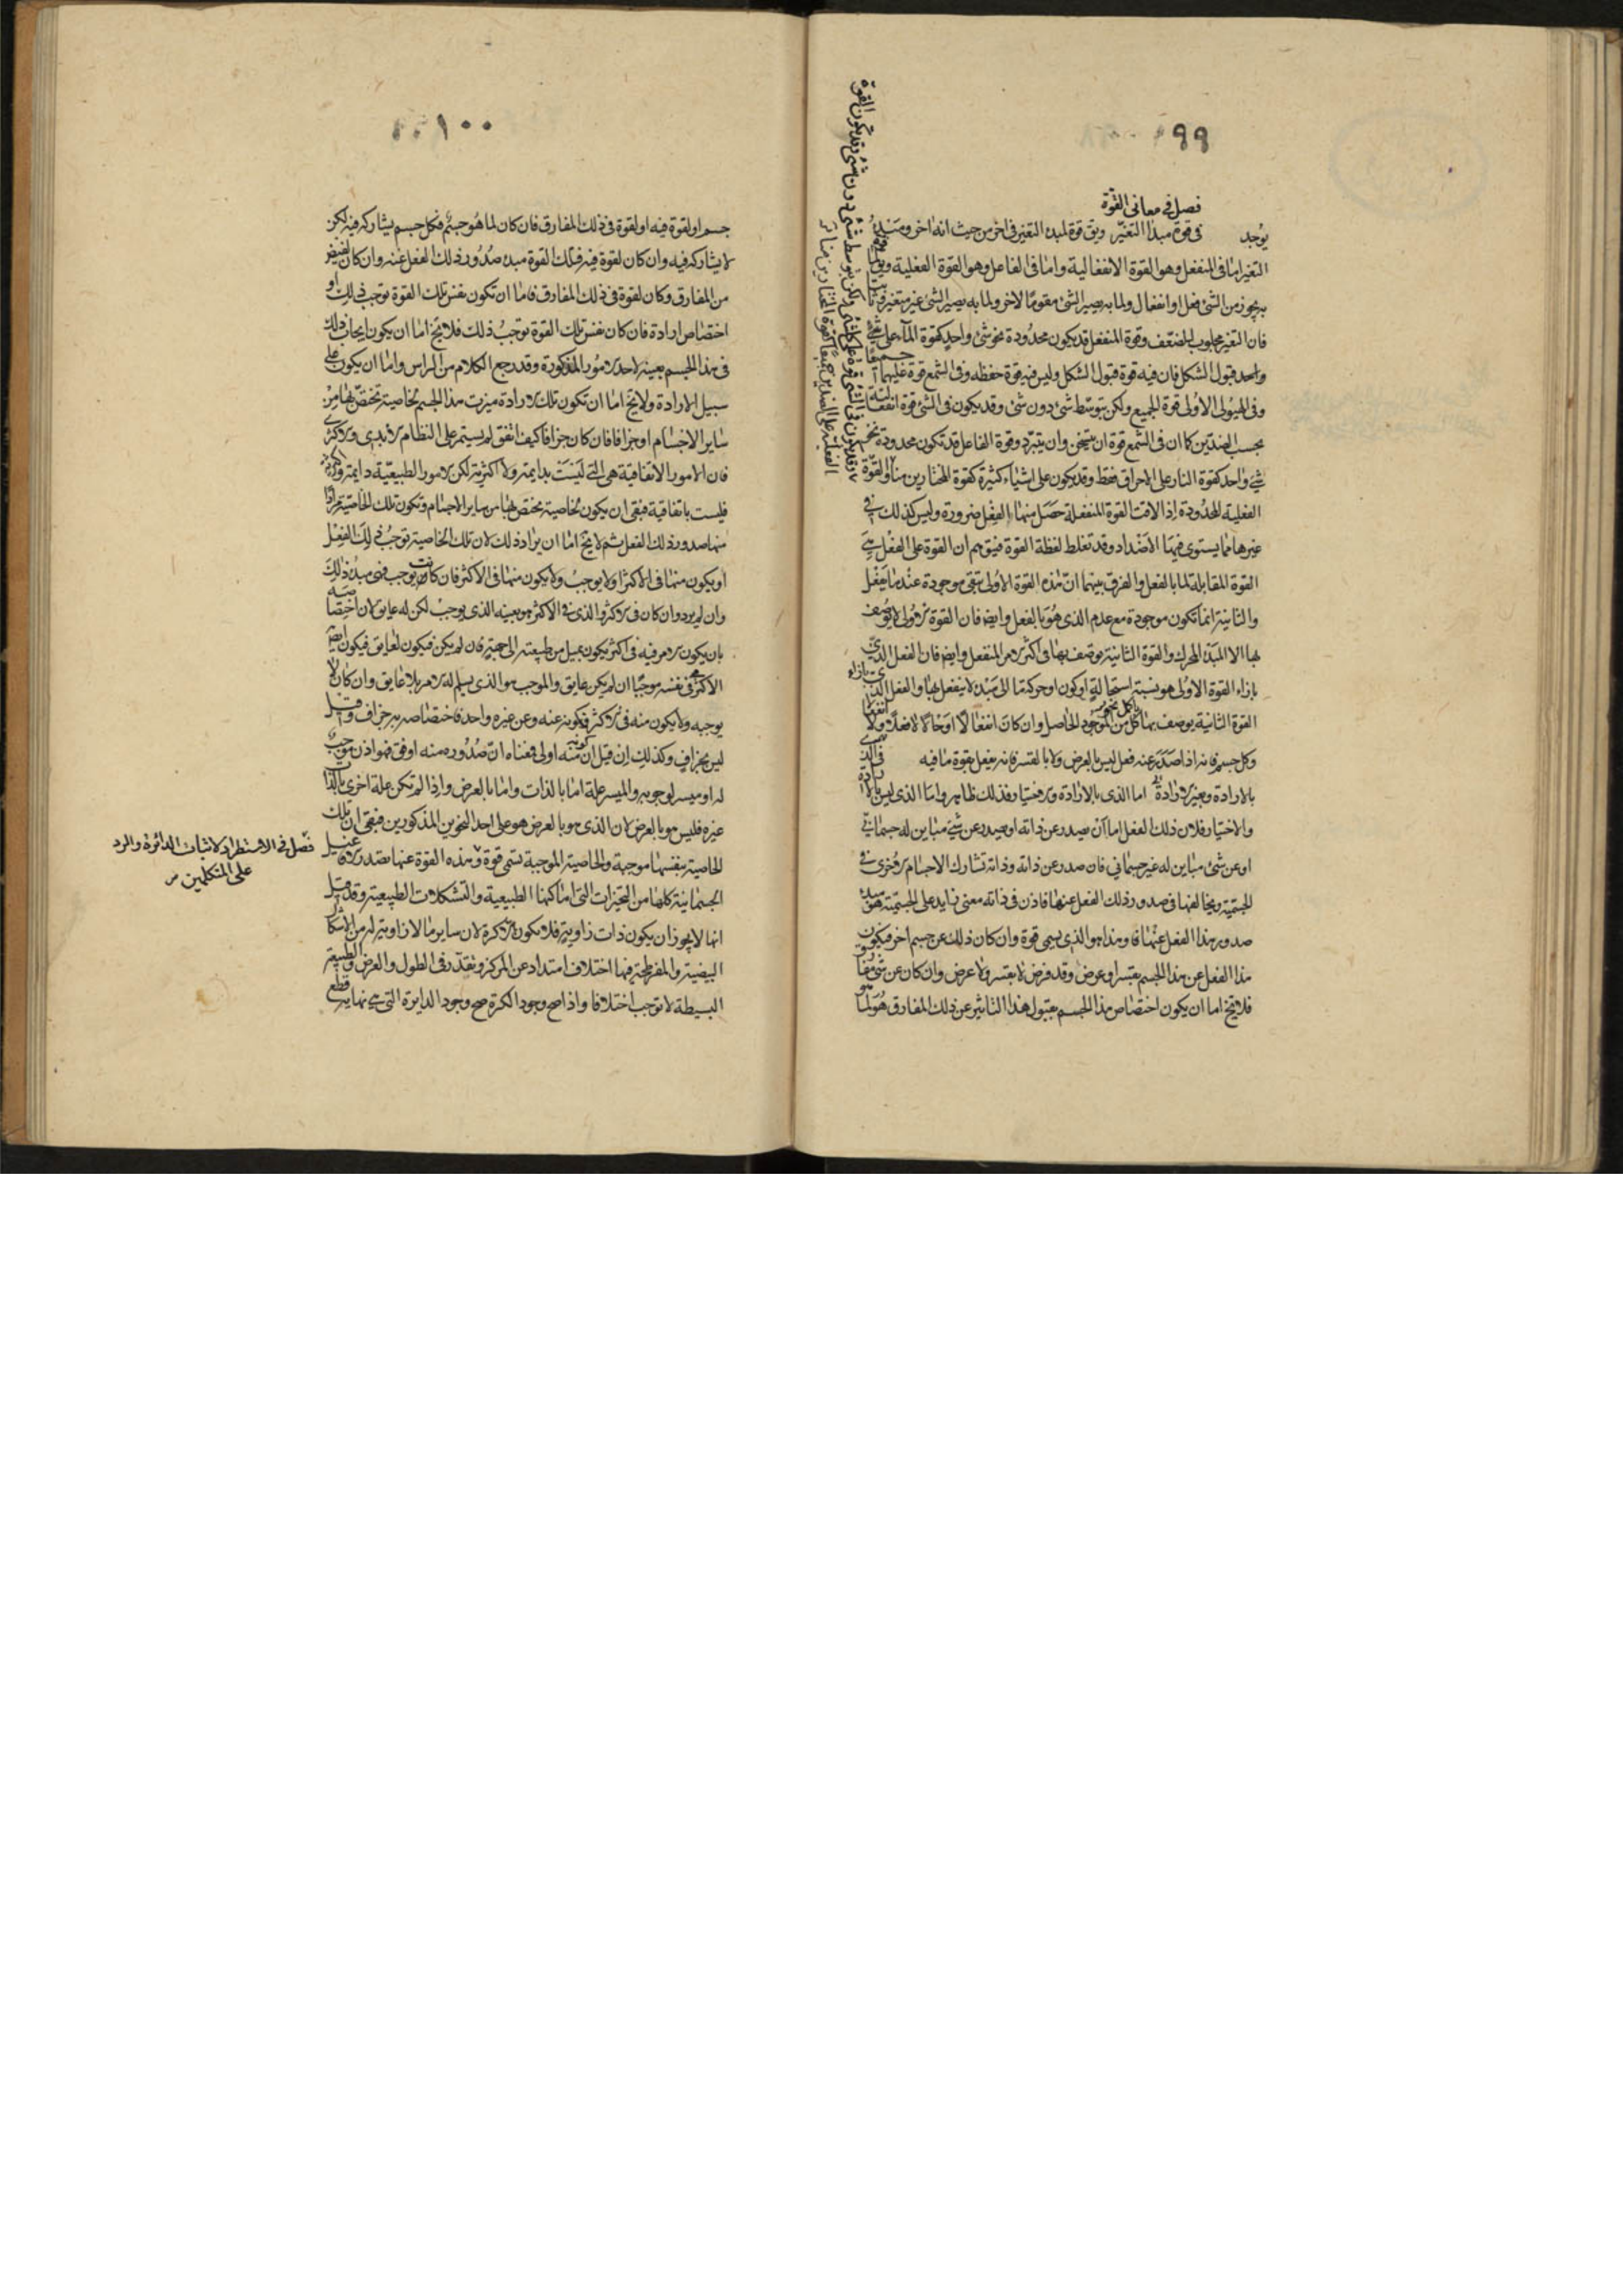 ٩٩
فصل في معانى القوة
يوجد في قوة مبدأ التغير ويق قوة لمبدء التغير في اخر من حيث انه اخر ومبدء
التغير اما في المنفعل وهو القوة الانفعالية واما في الفاعل وهو القوة الفعلية ويق لما
به يجوز من الشئ فعل او انفعال ولما به يصير الشئ مقوما لاخر ولما به يصير الشئ غير متغير وثابتا
فان التغير مجلوب للضعف وقوة المنفعل قد يكون محدودة نحو شئ واحد كقوة المآء على
واحد قبول الشكل فان فيه قوة قبول الشكل وليس فيه قوة حفظه وفي الشمع قوة عليهما جميعا
وفي الهيولى الاولى قوة الجميع ولكن بتوسط شئ دون شئ وقد يكون في الشئ قوة انفعالية
بحسب الضدين كما ان في الشمع قوة ان يتسخن وان يتبرد وقوة الفاعل قد تكون محدودة نحو
شئ واحد كقوة النار على الاحراق فقط وقد يكون على اشياء كثيرة كقوة المختارين منا والقوة
الفعلية المحدودة اذا لاقت القوة المنفعلة حصل منها الفعل ضرورة وليس كذلك في
غيرها مما يستوى فيها الاضداد وقد تغلط لفظة القوة فيتوهم ان القوة على الفعل هي
القوة المقابلة لما بالفعل والفرق بينهما ان هذه القوة الاولى تبقى موجودة عند ما يفعل
والثانية انما تكون موجودة مع عدم الذى هو بالفعل وايضا فان القوة الاولى لا يوصف
بها الا المبدأ المحرك والقوة الثانية يوصف بها في اكثر الامر المنفعل وايضا فان الفعل الذى
بازاء القوة الاولى هو نسبة استحالة او كون او حركة ما الى مبدء لا ينفعل بها والفعل الذى بازاء
القوة الثانية يوصف بها كل من الموجود الحاصل وان كان انفعالا او حالا لا فعلا ولا انفعالا
وكل جسم فانه اذا صدر عنه فعل ليس بالعرض ولا بالقسر فانه يفعل بقوة ما فيه
بالارادة وبغير الارادة اما الذى بالارادة والاختيار فذلك ظاهر واما الذى ليس بالارادة
والاختيار فلان ذلك الفعل اما ان يصدر عن ذاته او يصدر عن شئ مباين له جسماني
او عن شئ مباين له غير جسماني فان صدر عن ذاته وذاته تشارك الاجسام الاخرى في
الجسمية ويخالفها في صدور ذلك الفعل عنها فاذن في ذاته معنى زايد على الجسمية هو مبدء
صدور هذا الفعل عنها وهذا هو الذى يسمى قوة وان كان ذلك عن جسم اخر فيكون
هذا الفعل عن هذا الجسم بقسر او عرض وقد فرض لا بقسر ولا عرض وان كان عن شئ مفارق
فلا يخ اما ان يكون اختصاص هذا الجسم بقبول هذا التاثير عن ذلك المفارق هو لما هو
١٠٠
جسم او لقوة فيه او لقوة في ذلك المفارق فان كان لما هو جسم فكل جسم يشاركه فيه لكن
لا يشاركه فيه وان كان لقوة فيه فتلك القوة مبدء صدور ذلك الفعل عنه وان كان لفيض
من المفارق وكان لقوة في ذلك المفارق فاما ان تكون نفس تلك القوة توجب ذلك او
اختصاص ارادة فان كان نفس تلك القوة توجب ذلك فلا يخ اما ان يكون ايجاب ذلك
في هذا الجسم بعينه لاحد الامور المذكورة وقد رجع الكلام من الراس واما ان يكون على
سبيل الارادة ولا يخ اما ان تكون تلك الارادة ميزت هذا الجسم بخاصية تختص بها من
ساير الاجسام او جزافا فان كان جزافا كيف اتفق لم يستمر على النظام الابدى والاكثرى
فان الامور الاتفاقية هي التي ليست بدايمة ولا اكثرية لكن الامور الطبيعية دايمة واكثرية
فليست باتفاقية فبقى ان يكون بخاصية يختص بها من ساير الاجسام وتكون تلك الخاصية مرادا
منها صدور ذلك الفعل ثم لا يخ اما ان يراد ذلك لان تلك الخاصية توجب ذلك الفعل
او يكون منها في الاكثر او لا يوجب ولا يكون منها في الاكثر فان كانت توجب فهي مبدء ذلك
وان لم يرد وان كان في الاكثر والذى في الاكثر هو بعينه الذى يوجب لكن له عايق لان اختصاصه
بان يكون الامر فيه في اكثر يكون بميل من طبيعته الى جهة فان لم يكن فيكون لعايق فيكون ايضا
الاكثرى في نفسه موجبا ان لم يكن عايق والموجب هو الذى يسلم له الامر بلا عايق وان كان لا
يوجبه ولا يكون منه في الاكثر فكونه عنه وعن غيره واحد فاختصاصه به جزاف وقيل
ليس بجزاف وكذلك ان قيل ان كونه منه اولى فمعناه ان صدوره منه اوفق فهو اذن موجب
له او ميسر لوجوبه والميسر علة اما بالذات واما بالعرض واذا لم تكن علة اخرى بالذات
غيره فليس هو بالعرض لان الذى هو بالعرض هو على احد النحوين المذكورين فبقى ان تلك
الخاصية بنفسها موجبة والخاصية الموجبة تسمى قوة وهذه القوة عنها تصدر الافاعيل
الجسمانية كلها من التحيزات التى اماكنها الطبيعية والتشكلات الطبيعية وقد قيل
انها لا يجوز ان يكون ذات زاوية فلا تكون الا كرة لان ساير ما لا زاوية له من الاشكال
البيضية والمفرطحة فيها اختلاف امتداد عن المركز وتقدر في الطول والعرض والطبيعة
البسيطة لا توجب اختلافا واذا صح وجود الكرة صح وجود الدايرة التى هي نهاية قطع
فصل في الاستطراد لاثبات الدائرة والرد
على المتكلمين